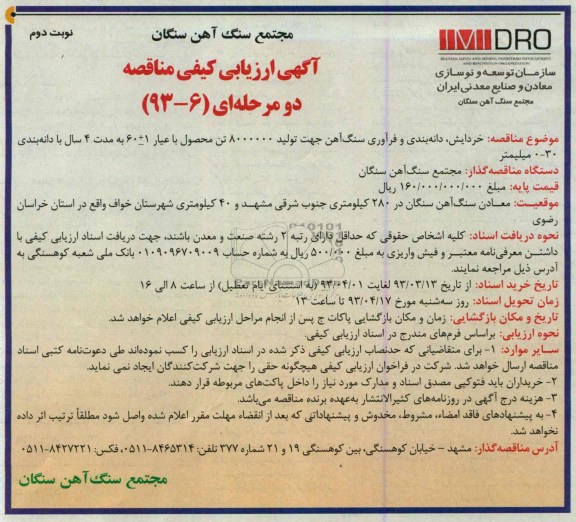 مجتمع سنگ آهن سنگان
نوبت دوم
آگهی ارزیابی کیفی مناقصه
دو مرحله‌ای (۶-۹۳)
IMIDRO
سازمان توسعه و نوسازی
معادن و صنایع معدنی ایران
مجتمع سنگ آهن سنگان
موضوع مناقصه: خردایش، دانه‌بندی و فرآوری سنگ‌آهن جهت تولید ۸۰۰۰۰۰۰ تن محصول با عیار ۱±۶۰ به مدت ۴ سال با دانه‌بندی
۳۰-۰ میلیمتر
دستگاه مناقصه‌گذار: مجتمع سنگ‌آهن سنگان
قیمت پایه: مبلغ ۱۶۰/۰۰۰/۰۰۰/۰۰۰ ریال
موقعیت: معادن سنگ‌آهن سنگان در ۲۸۰ کیلومتری جنوب شرقی مشهد و ۴۰ کیلومتری شهرستان خواف واقع در استان خراسان
رضوی
نحوه دریافت اسناد: کلیه اشخاص حقوقی که حداقل دارای رتبه ۲ رشته صنعت و معدن باشند، جهت دریافت اسناد ارزیابی کیفی با
داشتن معرفی‌نامه معتبر و فیش واریزی به مبلغ ۵۰۰/۰۰۰ ریال به شماره حساب ۰۱۰۹۰۹۶۷۰۹۰۰۹ بانک ملی شعبه کوهسنگی به
آدرس ذیل مراجعه نمایند.
تاریخ خرید اسناد: از تاریخ ۹۳/۰۳/۱۳ لغایت ۹۳/۰۴/۰۱ (به استثنای ایام تعطیل) از ساعت ۸ الی ۱۶
زمان تحویل اسناد: روز سه‌شنبه مورخ ۹۳/۰۴/۱۷ تا ساعت ۱۳
تاریخ و مکان بازگشایی: زمان و مکان بازگشایی پاکات ج پس از انجام مراحل ارزیابی کیفی اعلام خواهد شد.
نحوه ارزیابی: براساس فرم‌های مندرج در اسناد ارزیابی کیفی.
سایر موارد: ۱- برای متقاضیانی که حدنصاب ارزیابی کیفی ذکر شده در اسناد ارزیابی را کسب نموده‌اند طی دعوت‌نامه کتبی اسناد
مناقصه ارسال خواهد شد. شرکت در فراخوان ارزیابی کیفی هیچگونه حقی را جهت شرکت‌کنندگان ایجاد نمی نماید.
۲- خریداران باید فتوکپی مصدق اسناد و مدارک مورد نیاز را داخل پاکت‌های مربوطه قرار دهند.
۳- هزینه درج آگهی در روزنامه‌های کثیرالانتشار به‌عهده برنده مناقصه می‌باشد.
۴- به پیشنهادهای فاقد امضاء، مشروط، مخدوش و پیشنهاداتی که بعد از انقضاء مهلت مقرر اعلام شده واصل شود مطلقاً ترتیب اثر داده
نخواهد شد.
آدرس مناقصه‌گذار: مشهد – خیابان کوهسنگی، بین کوهسنگی ۱۹ و ۲۱ شماره ۳۷۷ تلفن: ۸۴۶۵۳۱۴-۰۵۱۱، فکس: ۸۴۲۷۲۲۱-۰۵۱۱
مجتمع سنگ‌آهن سنگان